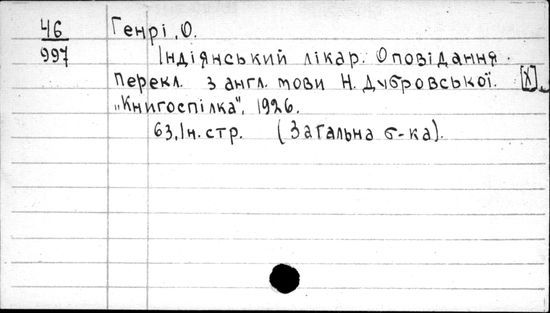 46
997
Генрі, О.
Індіянський лікар. Оповідання.
Перекл. з англ. мови Н. Дубровської. [Х]
„Книгоспілка", 1926.
63, Ін. стр. (Загальна б-ка).